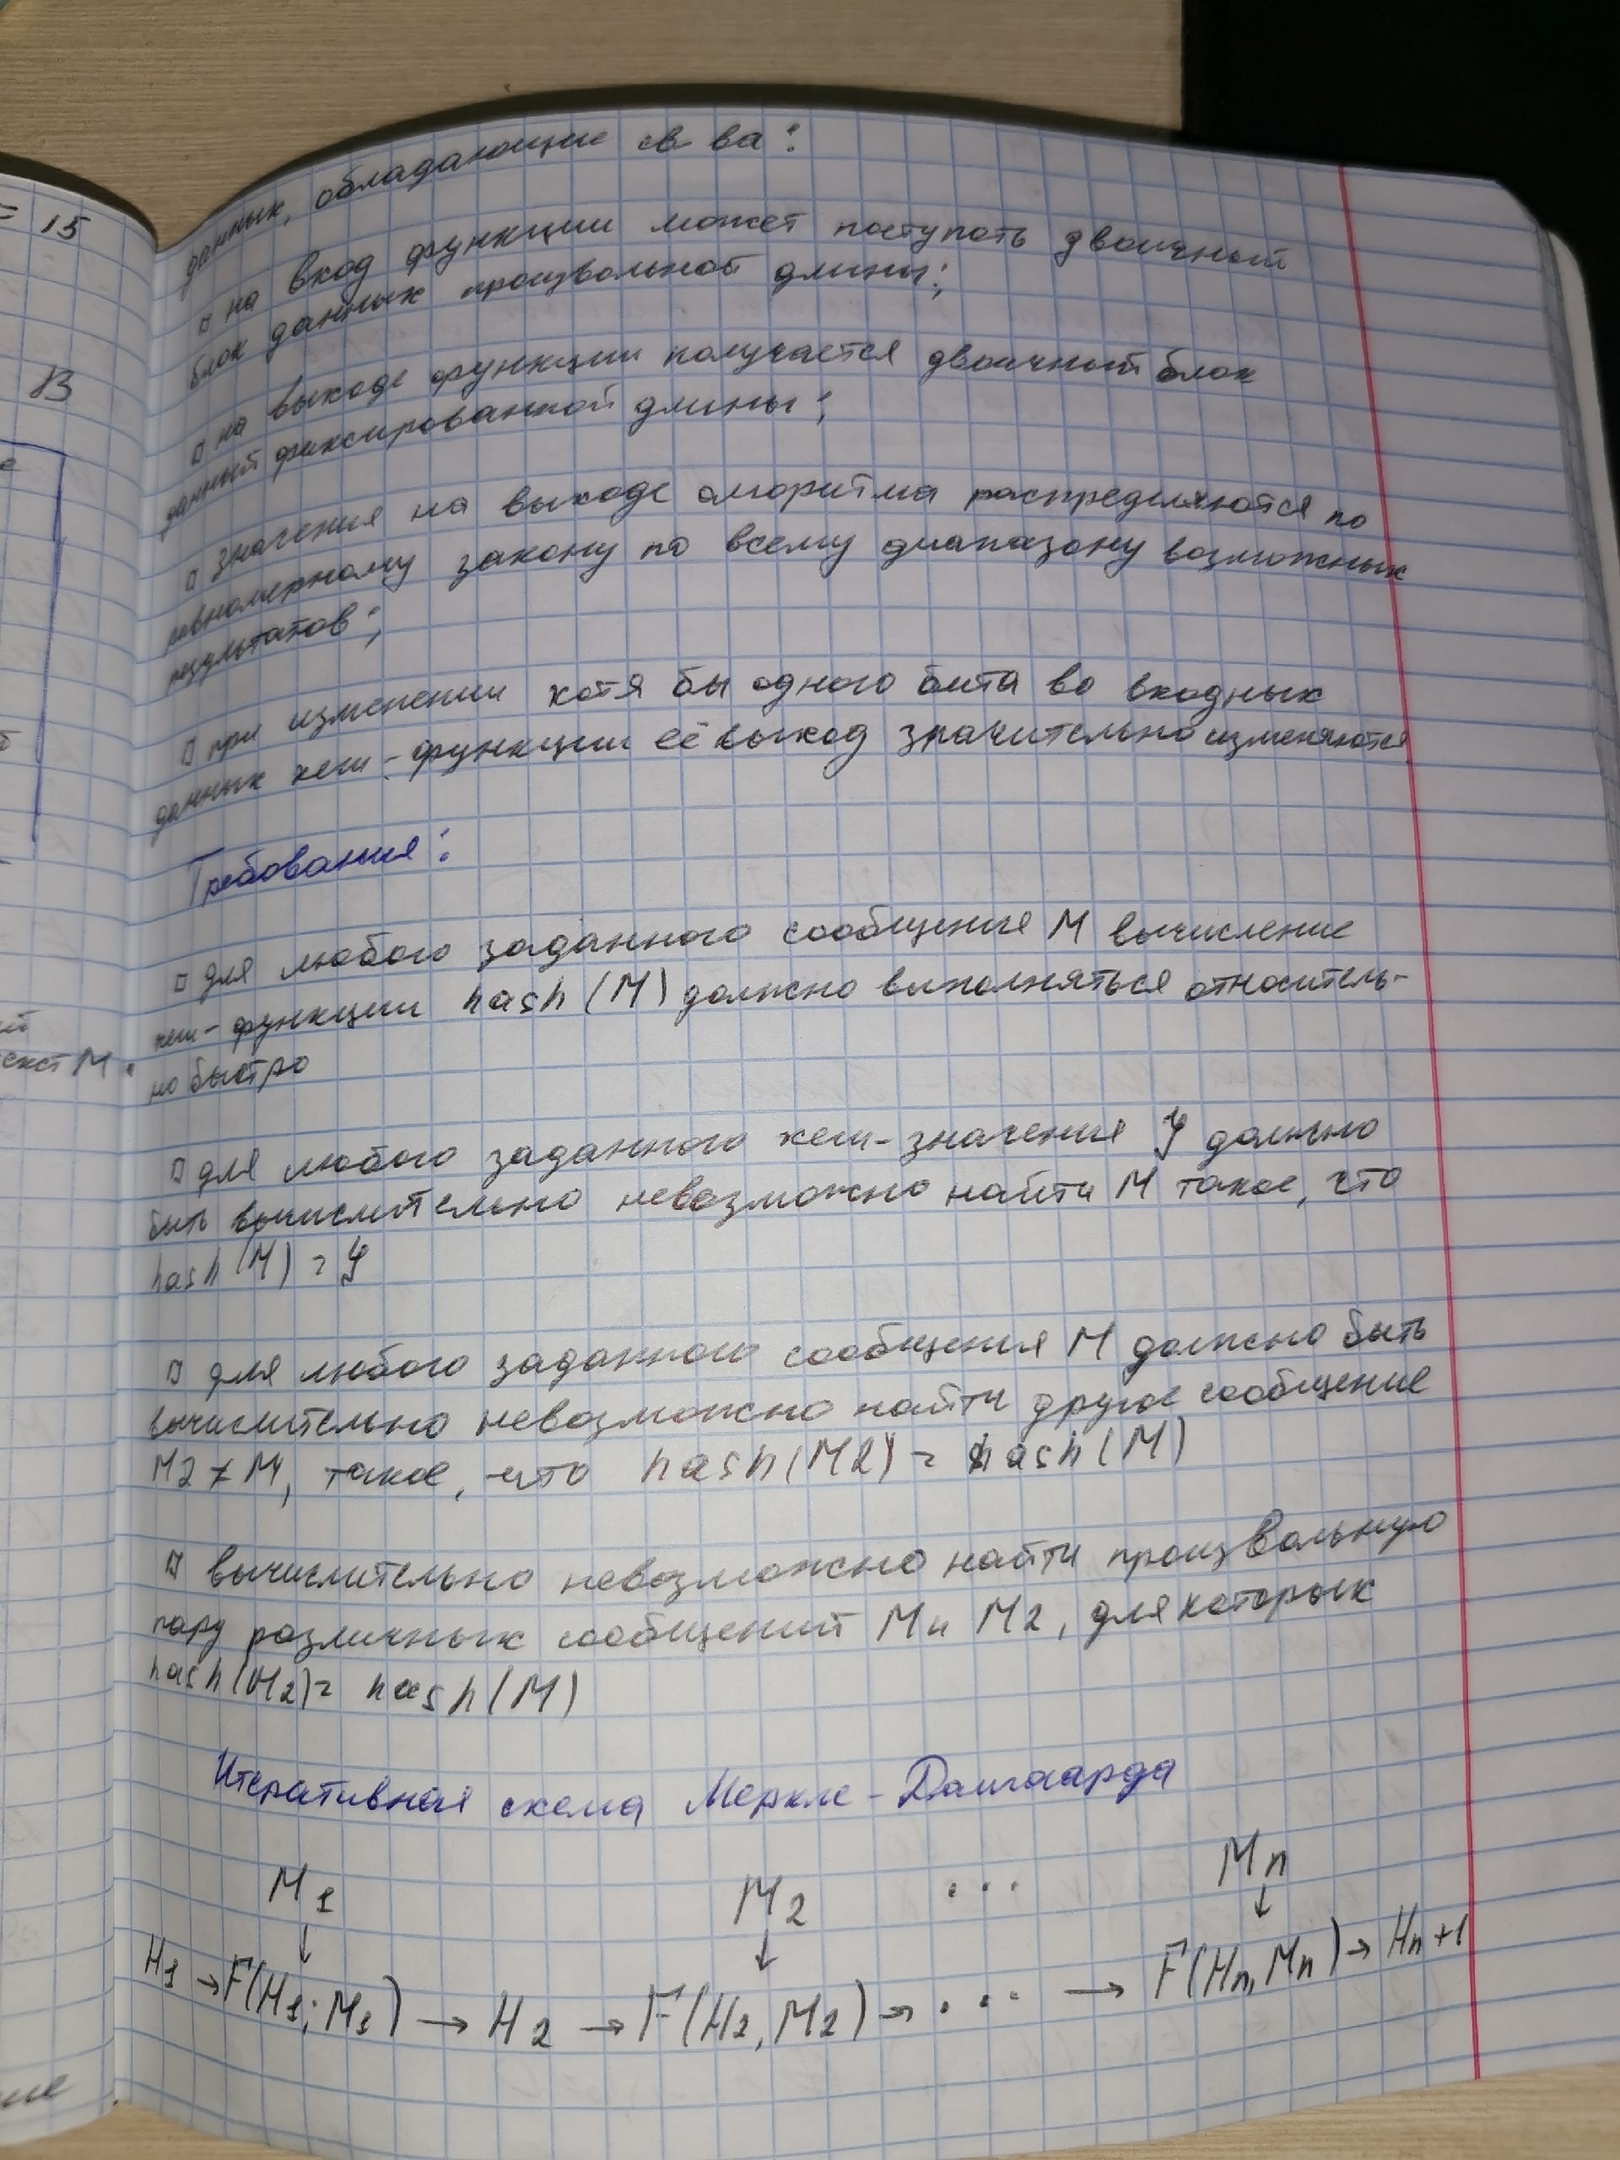 = 15
В
екст М.
данных, обладающие св-ва:
▫ на вход функции может поступать двоичный
блок данных произвольной длины;
▫ на выходе функции получается двоичный блок
данный фиксированной длины;
▫ значения на выходе алгоритма распределяются по
равномерному закону по всему диапазону возможных
результатов;
▫ при изменении хотя бы одного бита во входных
данных хеш-функции её выход значительно изменяются
Требования:
▫ для любого заданного сообщения М вычисление
хеш-функции hash (M) должно выполняться относитель-
но быстро
▫ для любого заданного хеш-значения y должно
быть вычислительно невозможно найти М такое, что
hash (M) = y
▫ для любого заданного сообщения М должно быть
вычислительно невозможно найти другое сообщение
M2 ≠ M, такое, что hash(M2) = hash(M)
▫ вычислительно невозможно найти произвольную
пару различных сообщений М и М2, для которых
hash(M2) = hash(M)
Итеративная схема Меркле-Дамгаарда
M1 M2 ... Mn
↓ ↓ ↓
H1 → F(H1; M1) → H2 → F(H2, M2) → ... → F(Hn, Mn) → Hn+1